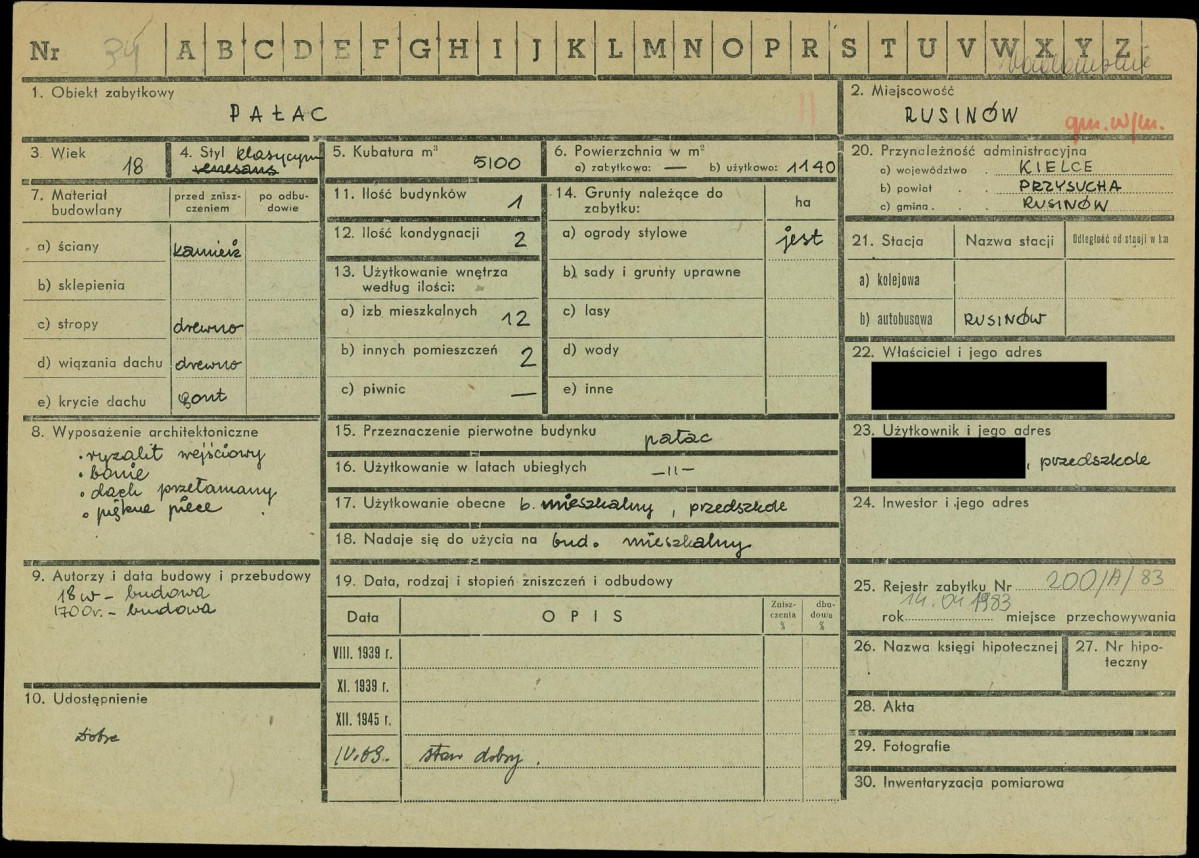 Nr 34 A B C D E F G H I J K L M N O P R S T U V W X Y Z
1. Obiekt zabytkowy
PAŁAC
II
2. Miejscowość
RUSINÓW
gm. w/m.
3. Wiek
18
4. Styl klasycyzm
renesans
5. Kubatura m³
5100
6. Powierzchnia w m²
a) zabytkowa: — b) użytkowa: 1140
20. Przynależność administracyjna
a) województwo . KIELCE
b) powiat . . PRZYSUCHA
c) gmina . . RUSINÓW
7. Materiał budowlany
przed zniszczeniem
po odbudowie
a) ściany kamień
b) sklepienia
c) stropy drewno
d) wiązania dachu drewno
e) krycie dachu gont
11. Ilość budynków 1
12. Ilość kondygnacji 2
13. Użytkowanie wnętrza
według ilości:
a) izb mieszkalnych 12
b) innych pomieszczeń 2
c) piwnic —
14. Grunty należące do
zabytku:
ha
a) ogrody stylowe jest
b) sady i grunty uprawne
c) lasy
d) wody
e) inne
21. Stacja Nazwa stacji Odległość od stacji w km
a) kolejowa
b) autobusowa RUSINÓW
22. Właściciel i jego adres
8. Wyposażenie architektoniczne
• ryzalit wejściowy
• banie
• dach przełamany
• piękne piece
15. Przeznaczenie pierwotne budynku pałac
16. Użytkowanie w latach ubiegłych —"—
17. Użytkowanie obecne b. mieszkalny, przedszkole
18. Nadaje się do użycia na bud. mieszkalny
23. Użytkownik i jego adres
, przedszkole
24. Inwestor i jego adres
9. Autorzy i data budowy i przebudowy
18 w – budowa
1700 r. – budowa
10. Udostępnienie
Dobre
19. Data, rodzaj i stopień zniszczeń i odbudowy
Data OPIS Zniszczenia % dbudowa %
VIII. 1939 r.
XI. 1939 r.
XII. 1945 r.
IV.69. stan dobry.
25. Rejestr zabytku Nr 200/A/83
14.04.1983
rok miejsce przechowywania
26. Nazwa księgi hipotecznej
27. Nr hipoteczny
28. Akta
29. Fotografie
30. Inwentaryzacja pomiarowa